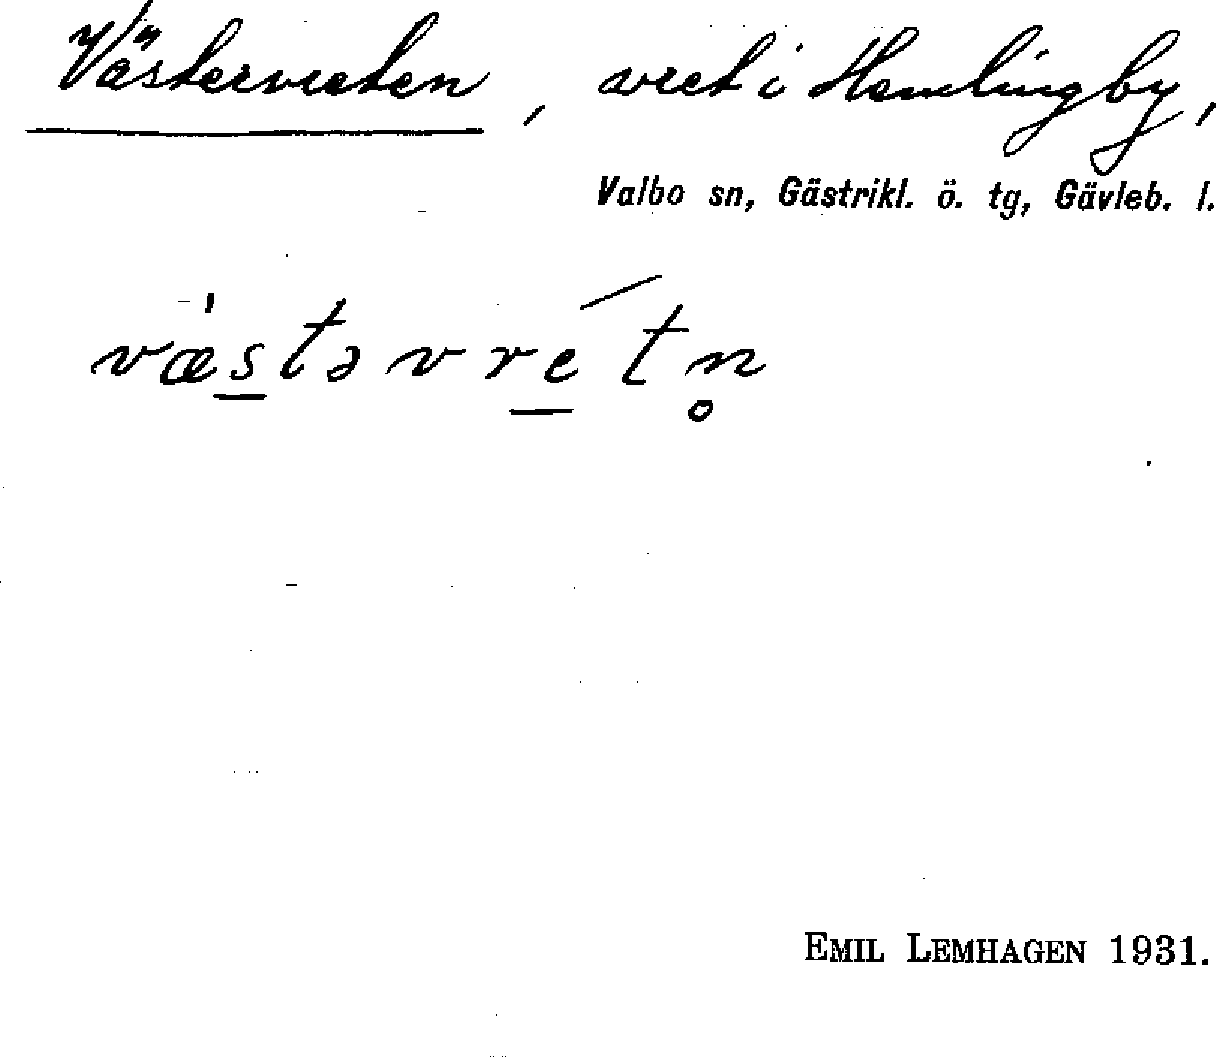 Västervreten, vret i Hemlingby,
Valbo sn, Gästrikl. ö. tg, Gävleb. l.
væ̀s̲təvré̲tn̥
EMIL LEMHAGEN 1931.